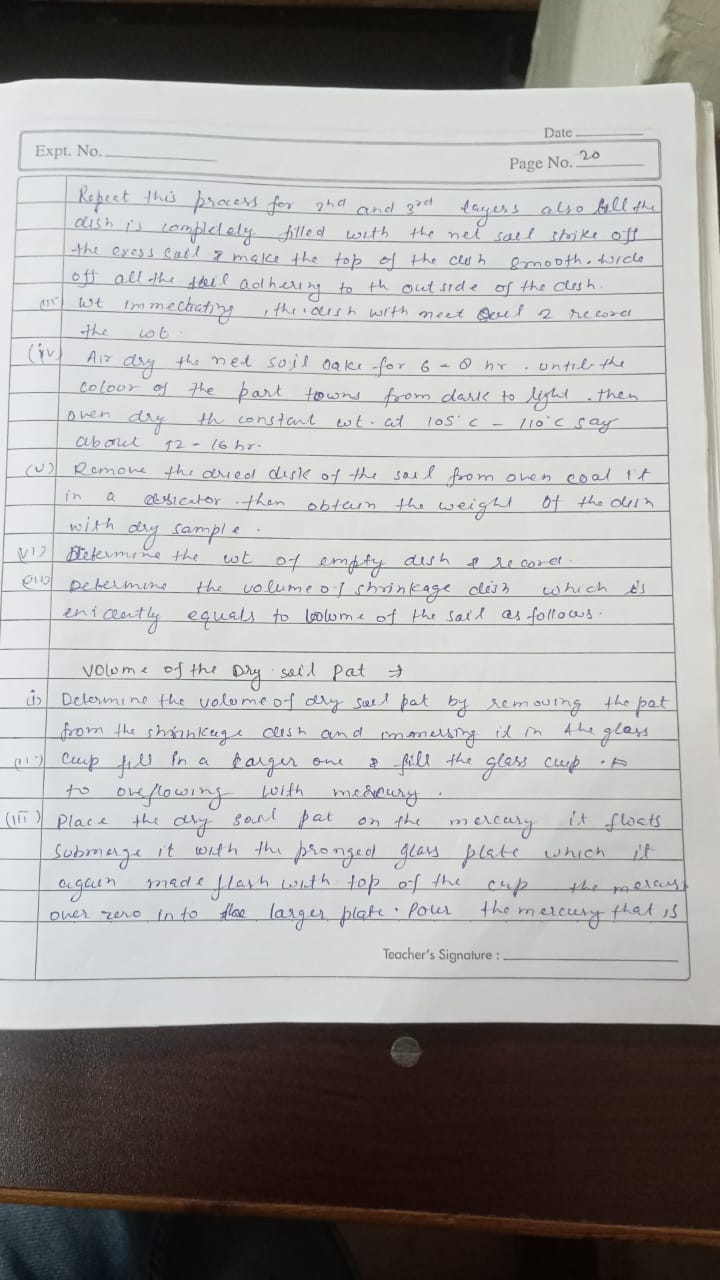 Date
Expt. No.
Page No. 20
Repeat this process for 2nd and 3rd layers also till the
dish is completely filled with the net sail strike off
the exess & make the top of the dish smooth. wide
off all the adhering to th out side of the dish.
(iii) wt immediating , the dish with record
the wt.
(iv) Air dry the net soil cake for 6 - 8 hr . until the
colour of the part towns from dark to light . then
oven dry th constant wt. at 105°c - 110°c say
about 12 - 16 hr.
(v) Remove the dried disk of the sail from oven coal it
in a desicator . then obtain the weight of the dish
with dry sample .
vi) Determine the wt of empty dish & record .
Determine the volume of shrinkage dish which is
equals to of the sail as follows .
volume of the Dry sail Pat ⇒
i) Determine the volume of dry sail pat by removing the pat
from the shrinkage dish and immersing it in the glass
(ii) Cup fill in a larger one & fill the glass cup .
to oveflowing with mercury .
(iii) Place the dry sail pat on the mercury it floats
submerge it with the pronged glass plate which it
again made flash with top of the cup the
over zero in to larger plate . Pour the mercury that is
Teacher's Signature :